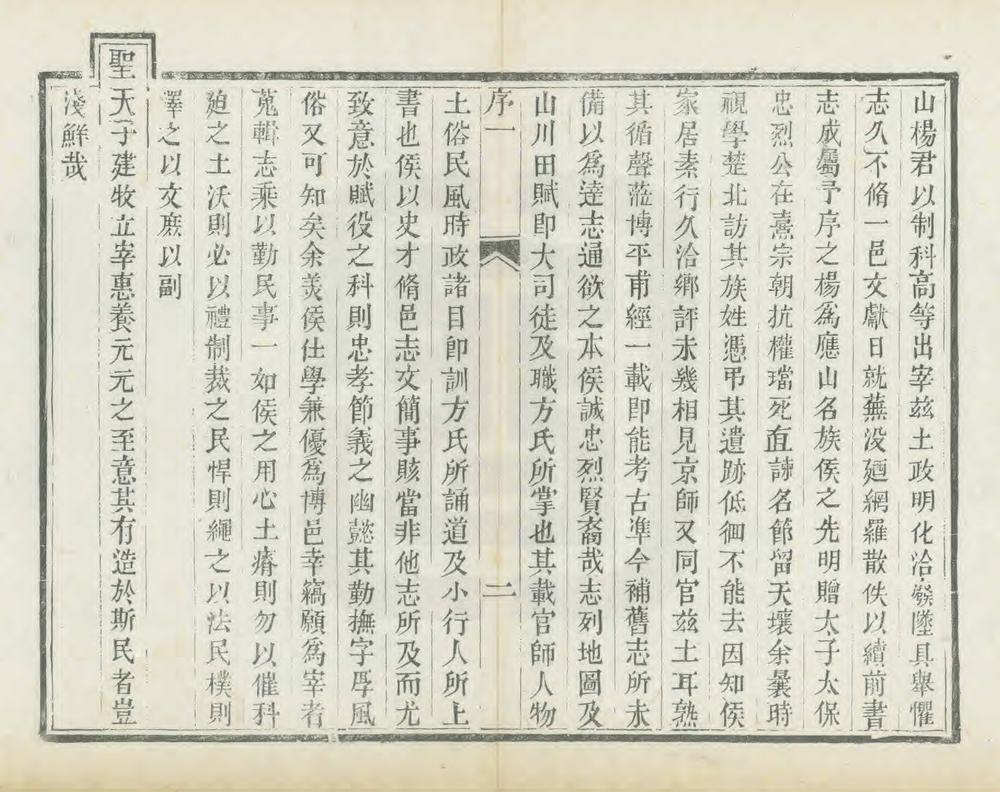 山楊君以制科高等出宰兹土政明化洽癈墜具舉懼
志久不脩一邑文獻日就蕪没廼網羅散佚以續前書
志成屬予序之楊爲應山名族侯之先明贈太子太保
忠烈公在熹宗朝抗權璫死直諫名節留天壤余曩時
視學楚北訪其族姓憑弔其遺跡低徊不能去因知侯
家居素行久洽鄉評未幾相見京師又同官兹土耳熟
其循聲蒞博平甫經一載即能考古凖今補舊志所未
備以爲達志通欲之本侯誠忠烈賢裔哉志列地圖及
山川田賦即大司徒及職方氏所掌也其載官師人物
序一
二
土俗民風時政諸目即訓方氏所誦道及小行人所上
書也侯以史才脩邑志文簡事賅當非他志所及而尤
致意於賦役之科則忠孝節義之幽懿其勤撫字厚風
俗又可知矣余羙侯仕學兼優爲博邑幸竊願爲宰者
蒐輯志乘以勤民事一如侯之用心土瘠則勿以催科
廹之土沃則必以禮制裁之民悍則繩之以法民樸則
澤之以文庶以副
聖天子建牧立宰惠養元元之至意其有造於斯民者豈
淺鮮哉